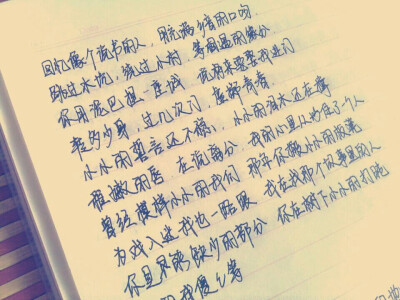 回忆像个说书的人,用充满乡音的口吻
跳过水坑,绕过小村,等相遇的缘分
你用泥巴捏一座城 说将来要娶我进门
转多少身,过几次门,虚掷青春
小小的誓言还不稳,小小的泪水还在撑
稚嫩的唇,在说离分,我的心里从此住了一个人
曾经模样小小的我们 那年你搬小小的板凳
为戏入迷我也一路跟 我在找那个故事里的人
你是不能缺少的部分 你在树下小小的打盹
的我傻々等